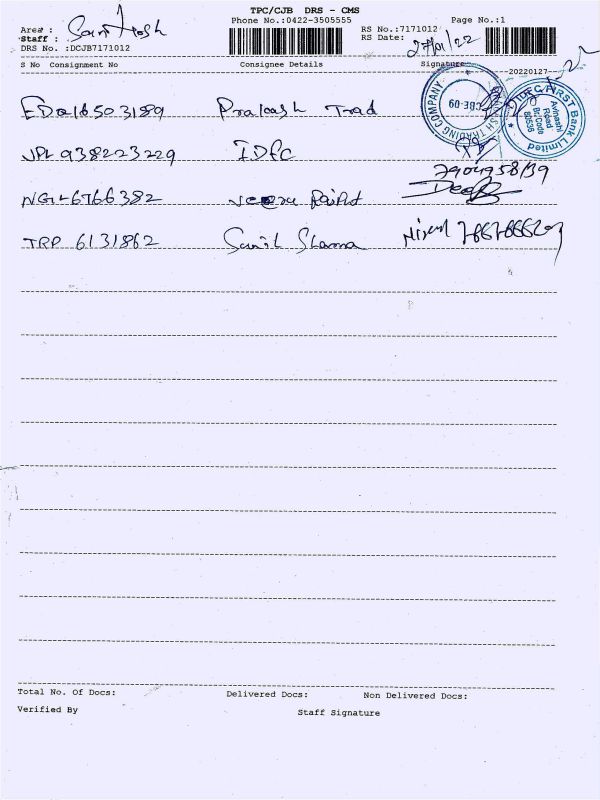 TPC/CJB DRS - CMS
Phone No.:0422-3505555 Page No.:1
Area :
Staff : Santosh
RS No.:7171012
RS Date: 27/01/22
DRS No. :DCJB7171012
S No Consignment No Consignee Details Signature 20220127
EDA165031189 Prakash Trad
TRADING COMPANY
CBE-09
IDFC FIRST Bank Limited
Avinashi
Road
Br. Code
80536
VPL 938223229 IDFC
NGL 6766382
TRP 6131862 Sunil Sharma
Total No. Of Docs: Delivered Docs: Non Delivered Docs:
Verified By Staff Signature